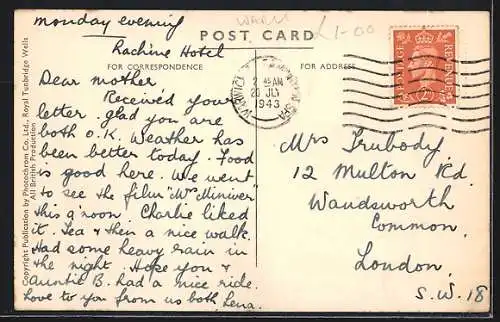 Monday evening
WARW
£1-00
POST CARD
Rachine Hotel
FOR CORRESPONDENCE
FOR ADDRESS
Dear mother
Received your
letter. glad you are
both O.K. Weather has
been better today. Food
is good here. We went
to see the film "Mrs Miniver"
this a'noon. Charlie liked
it. Tea & then a nice walk.
Had some heavy rain in
the night. Hope you &
Auntie B. had a nice ride.
Love to you from us both Lena.
Copyright Publication by Photochrom Co., Ltd., Royal Tunbridge Wells
All British Production
WARWICK
SPA
AM
20 JLY
1943
POSTAGE
REVENUE
Mrs Trubody
12 Multon Rd.
Wandsworth
Common.
London.
S.W. 18